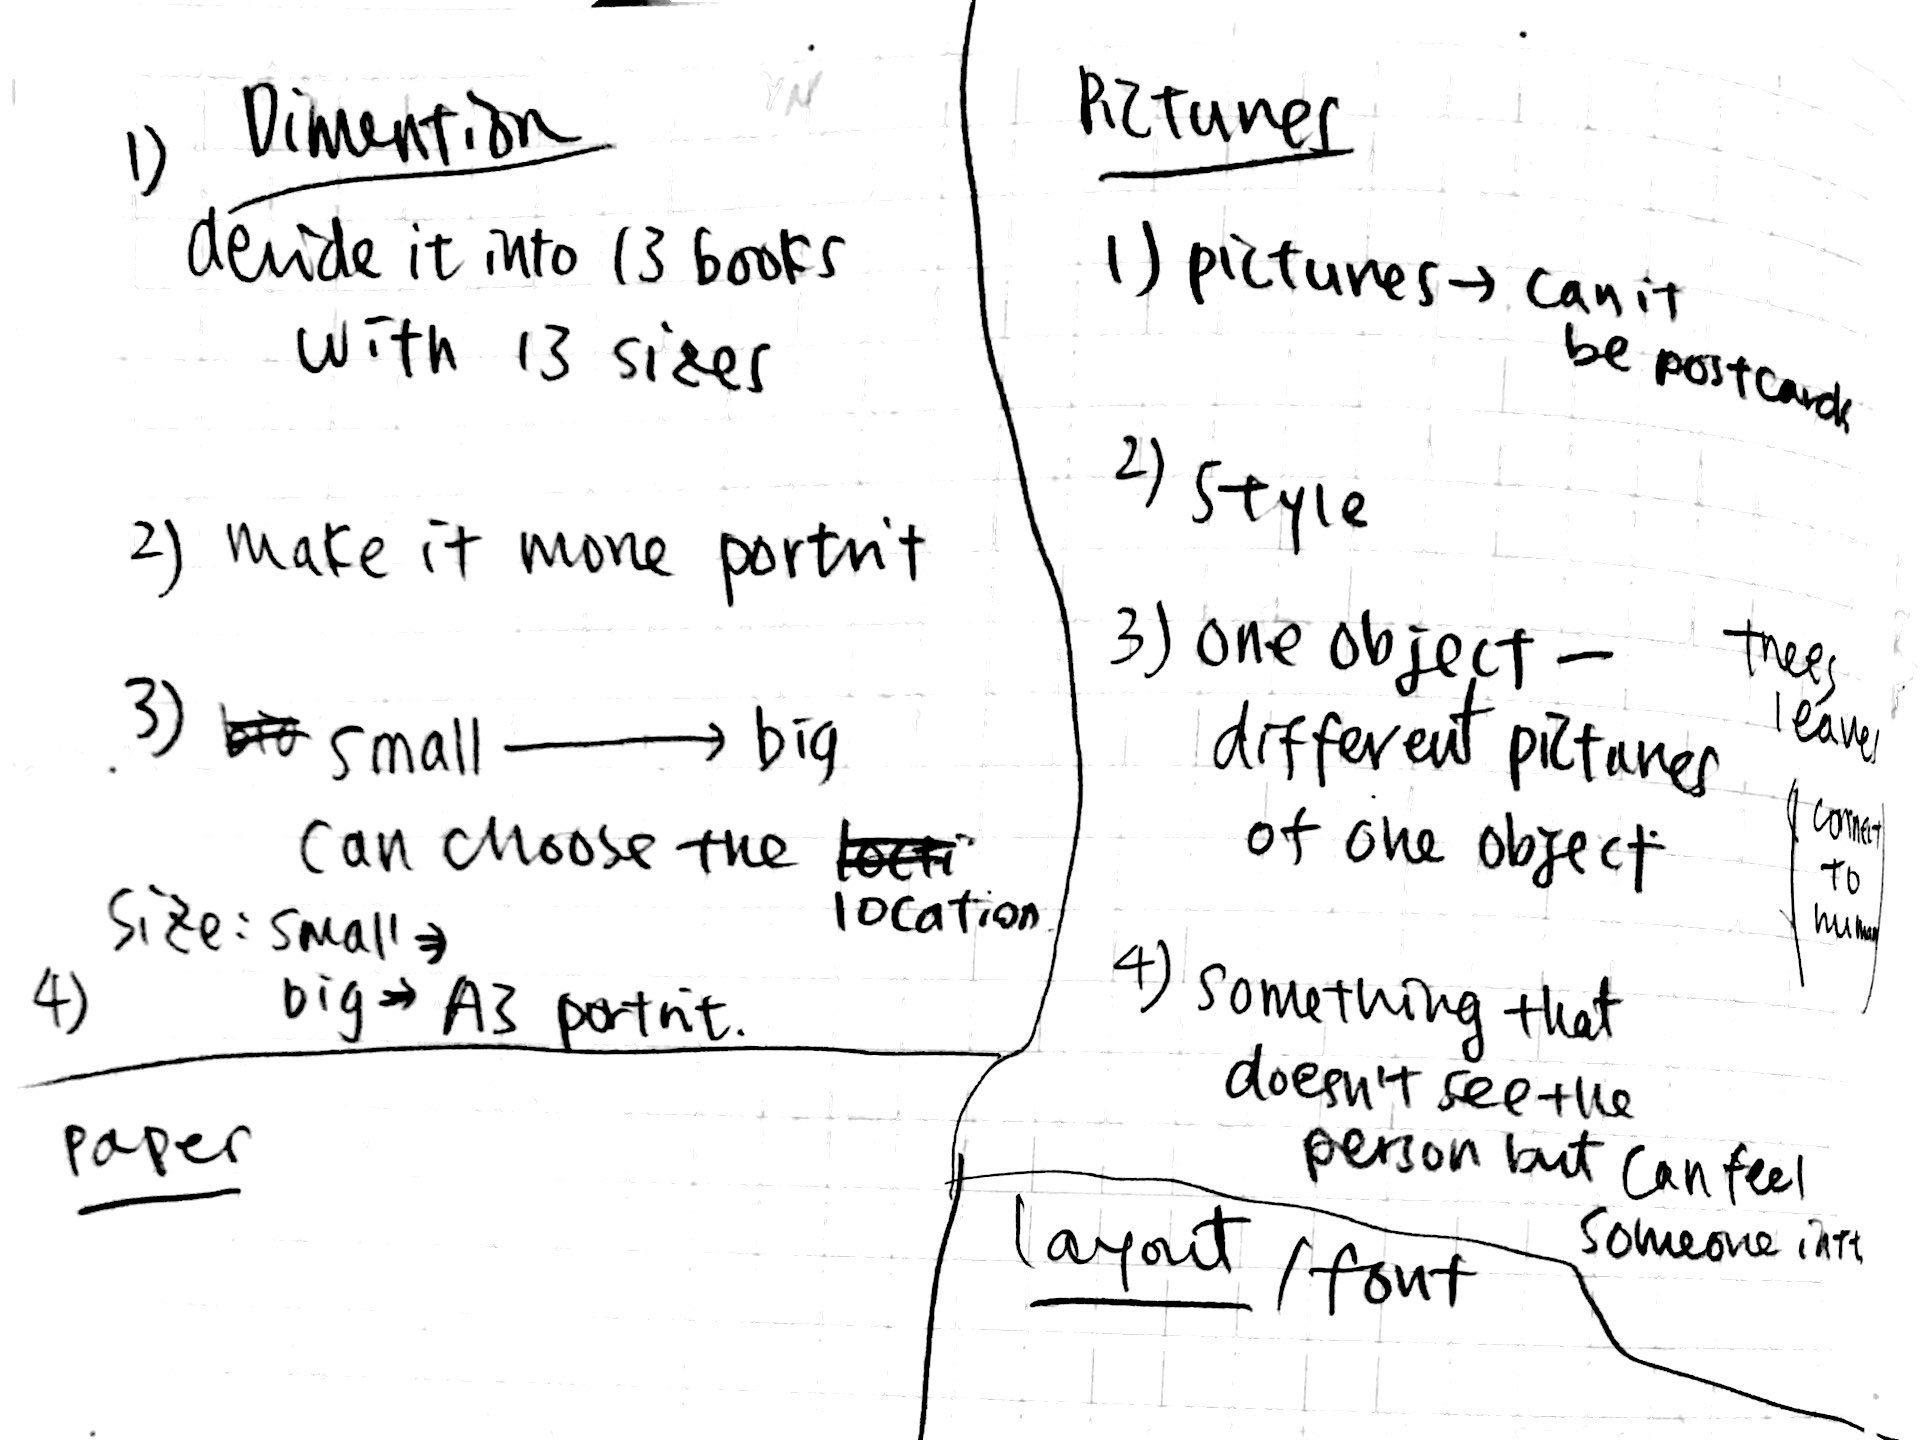 Dimention
1)
devide it into 13 books
with 13 sizes
2) make it more portrit
3) small → big
can choose the
location
size: small →
4) big → A3 portrit.
paper
Pictures
1) pictures → can it
be postcards
2) style
3) one object —
different pictures
of one object
trees
leaves
(connect
to
human)
4) something that
doesn't see the
person but can feel
someone in it
layout / font